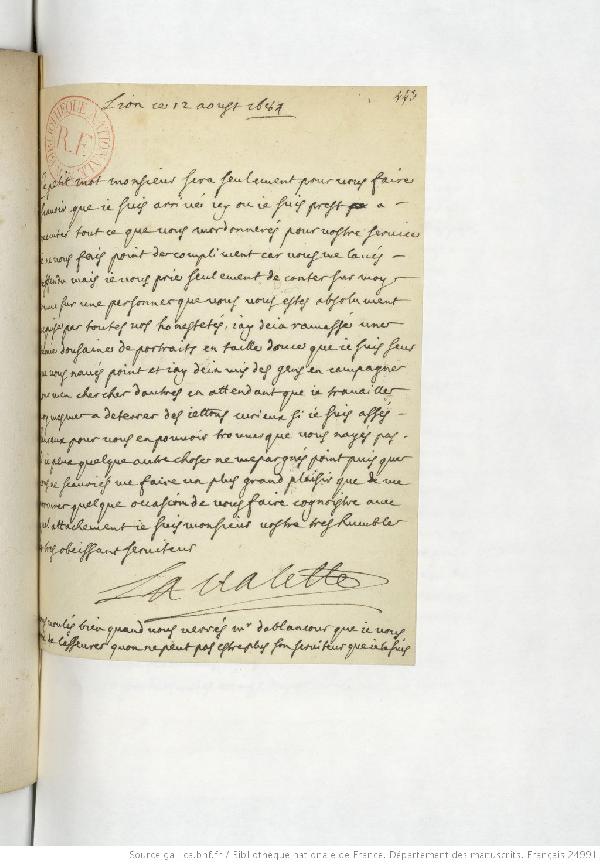 443
Lion ce 12 aoust 1684
BIBLIOTHEQUE NATIONALE
R.F.
petit mot monsieur sera seulement pour vous faire
que ie suis arrivé icy ou ie suis prest a
tout ce que vous mordonnerés pour vostre service
vous fais point de compliment car vous me lavés
mais ie vous prie seulement de conter sur moy
sur une personne que vous vous estes absolument
par toutes vos honestetés, iay deia ramassé une
dousaine de portraits en taille douce que ie suis seur
vous navés point et iay deia mis des gens en campagne
chercher dautres en attendant que ie travaille
a deterrer des iettons curieux si ie suis assés
pour vous en pouvoir trouver que vous nayes pas
quelque autre chose ne mepargnes point puis que
ne scauries me faire un plus grand plaisir que de me
quelque occasion de vous faire cognoistre avec
attachement ie suis monsieur vostre tres humble
tres obeissant serviteur
La Valette
voulés bien quand vous verrés mr dablancour que ie vous
de lasseurer quon ne peut pas estre plus son serviteur que ie le suis
Source gallica.bnf.fr / Bibliothèque nationale de France. Département des manuscrits. Français 24991